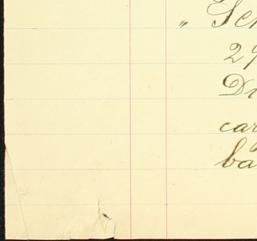 " Sen
29
Di
car
ba